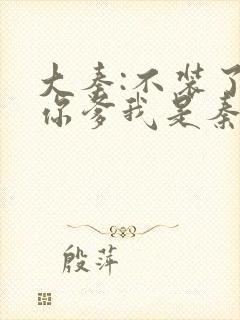 大秦:不装了
你爹我是秦
殷萍